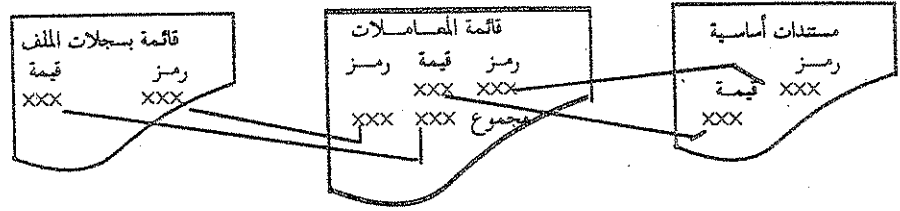 مستندات أساسية
رمـــز
قيمـة XXX
XXX
قائمة المعـامـــلات
رمـز قيمة رمـــز
XXX XXX
مجموع XXX XXX
قائمة بسجلات الملف
رمـــز قيمة
XXX XXX